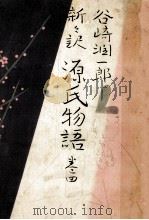 谷崎潤一郎
新々訳
源氏物語
巻四